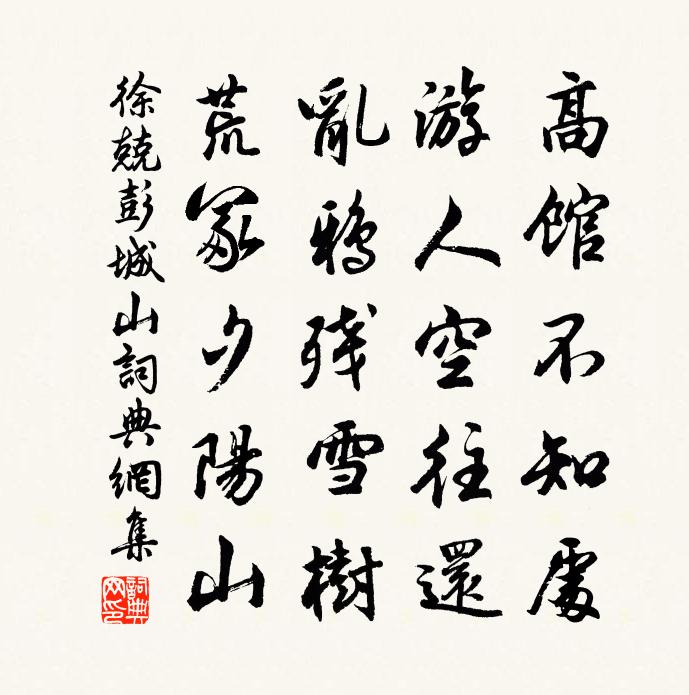 高館不知處
游人空往還
亂鴉殘雪樹
荒冢夕陽山
徐兢彭城山詞典網集
詞典網印